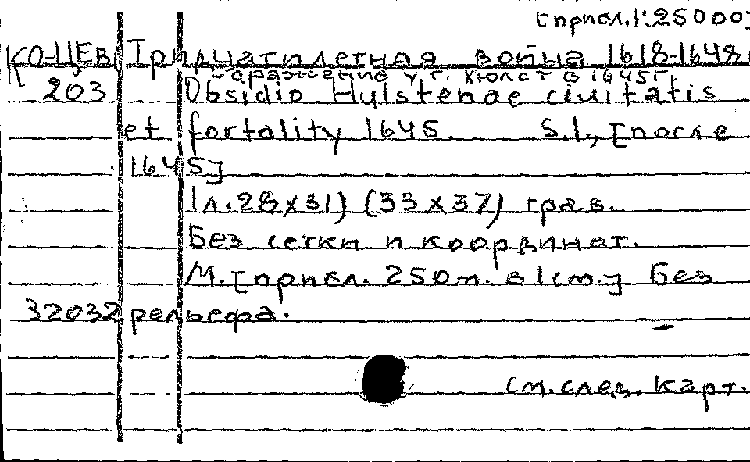 [прибл. 1:25000]
КО-ЦЕВ Тридцатилетная война 1618-1648
Сражение у г. Хюлст в 1645 г.
203 Obsidio Hulstenae civitatis
et fortality 1645. S.l., [после
1645]
1 л. 28х31) (33х37) грав.
Без сетки и координат.
М. [прибл. 250 м. в 1 см.] Без
32032 рельефа.
См. след. карт.